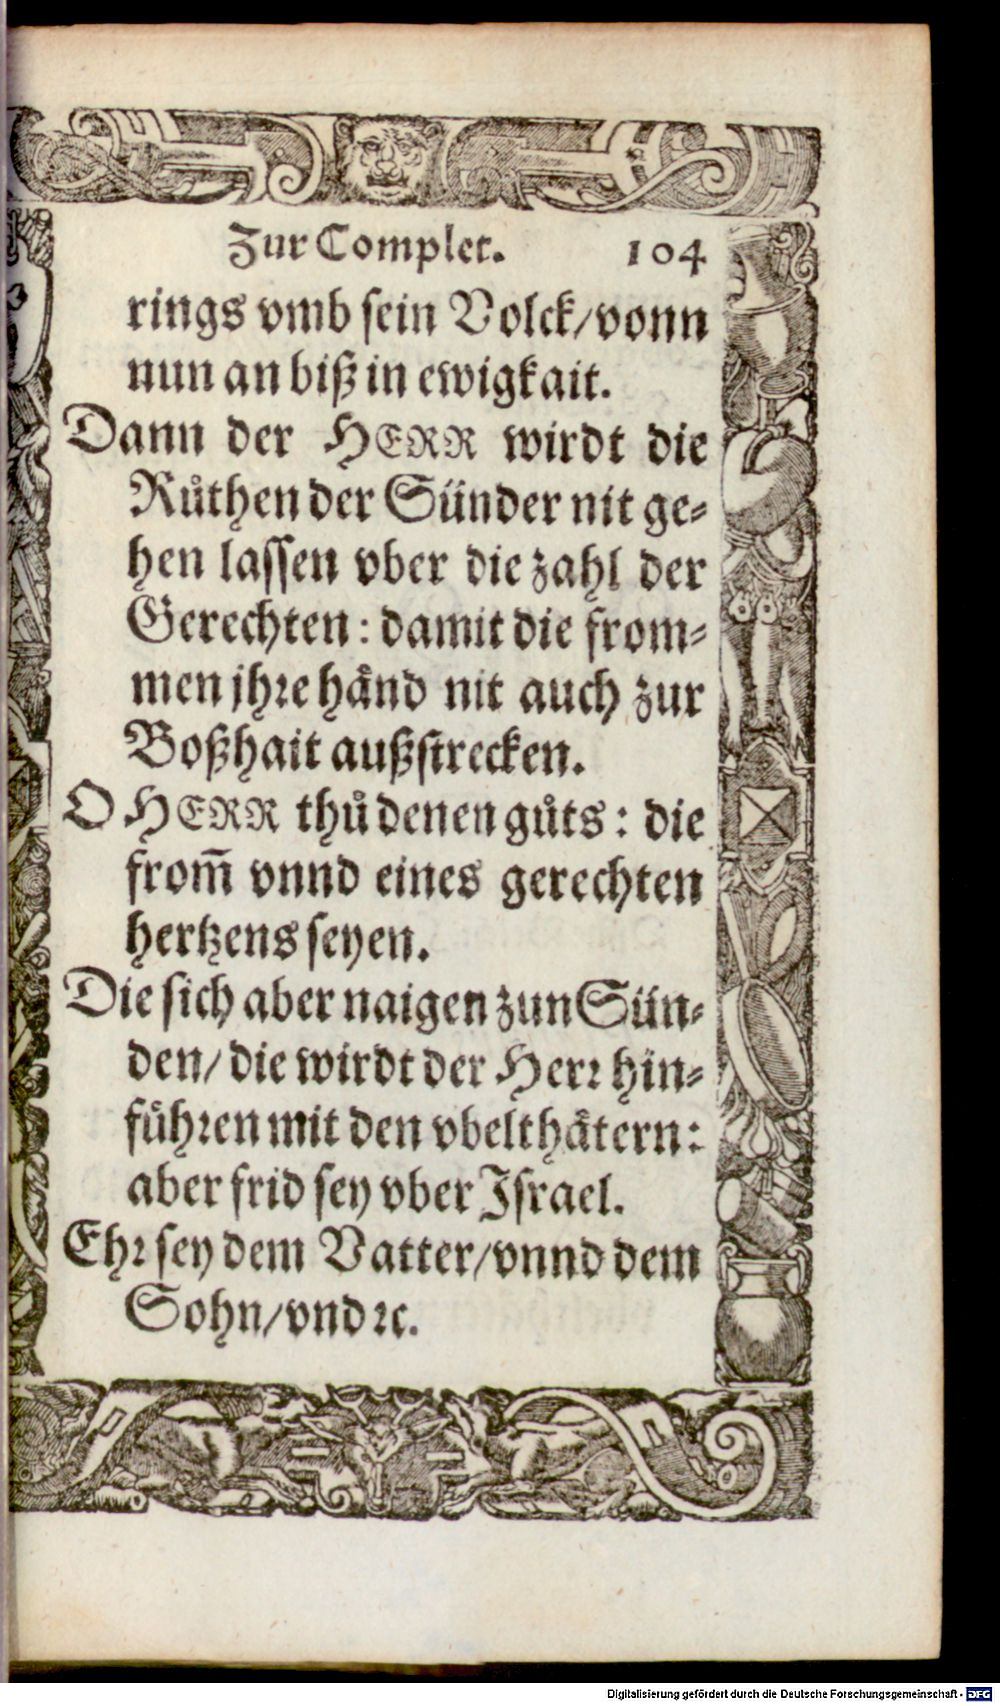 Zur Complet. 104
rings vmb sein Volck/vonn
nun an biß in ewigkait.
Dann der HERR wirdt die
Růthen der Sünder nit ge-
hen lassen vber die zahl der
Gerechten: damit die from-
men jhre händ nit auch zur
Boßhait außstrecken.
O HERR thů denen gůts: die
from̄ vnnd eines gerechten
hertzens seyen.
Die sich aber naigen zun Sün-
den/ die wirdt der Herr hin-
führen mit den vbelthätern:
aber frid sey vber Israel.
Ehr sey dem Vatter/vnnd dem
Sohn/vnd ꝛc.
Digitalisierung gefördert durch die Deutsche Forschungsgemeinschaft - DFG